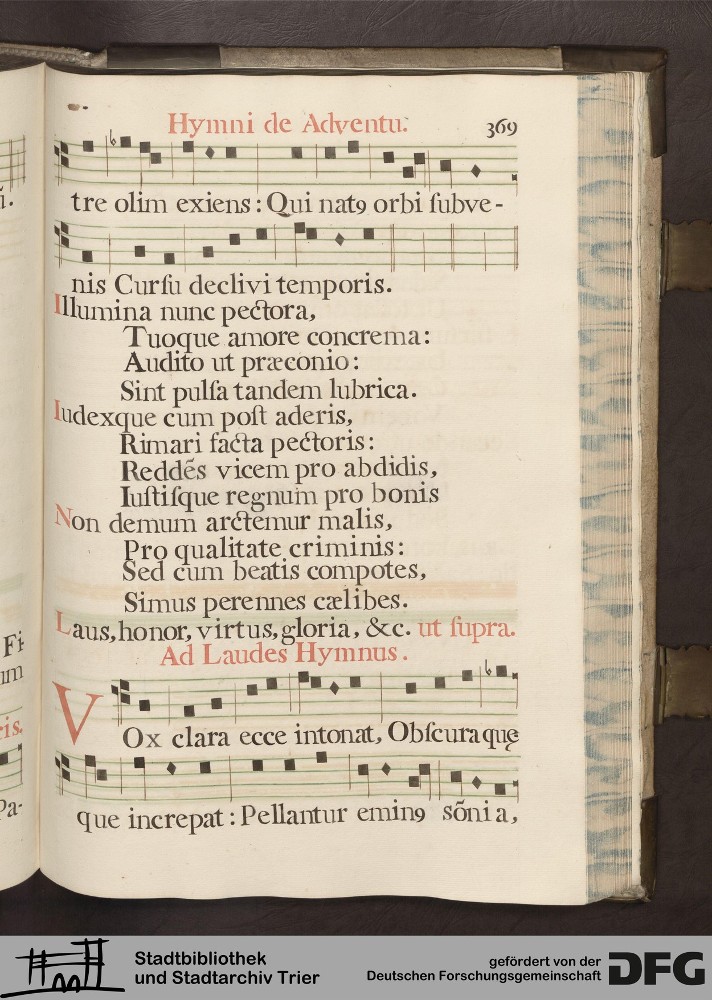 Hymni de Adventu. 369
tre olim exiens : Qui natꝯ orbi ſubve-
nis Curſu declivi temporis.
Illumina nunc pectora,
Tuoque amore concrema:
Audito ut præconio:
Sint pulſa tandem lubrica.
Iudexque cum poſt aderis,
Rimari facta pectoris:
Reddẽs vicem pro abdidis,
Iuſtiſque regnum pro bonis
Non demum arctemur malis,
Pro qualitate criminis:
Sed cum beatis compotes,
Simus perennes cælibes.
Laus, honor, virtus, gloria, &c. ut ſupra.
Ad Laudes Hymnus.
VOx clara ecce intonat, Obſcura quę
que increpat : Pellantur eminꝯ sõnia,
Fi-
um
ris.
Pa-
Stadtbibliothek
und Stadtarchiv Trier
gefördert von der
Deutschen Forschungsgemeinschaft
DFG